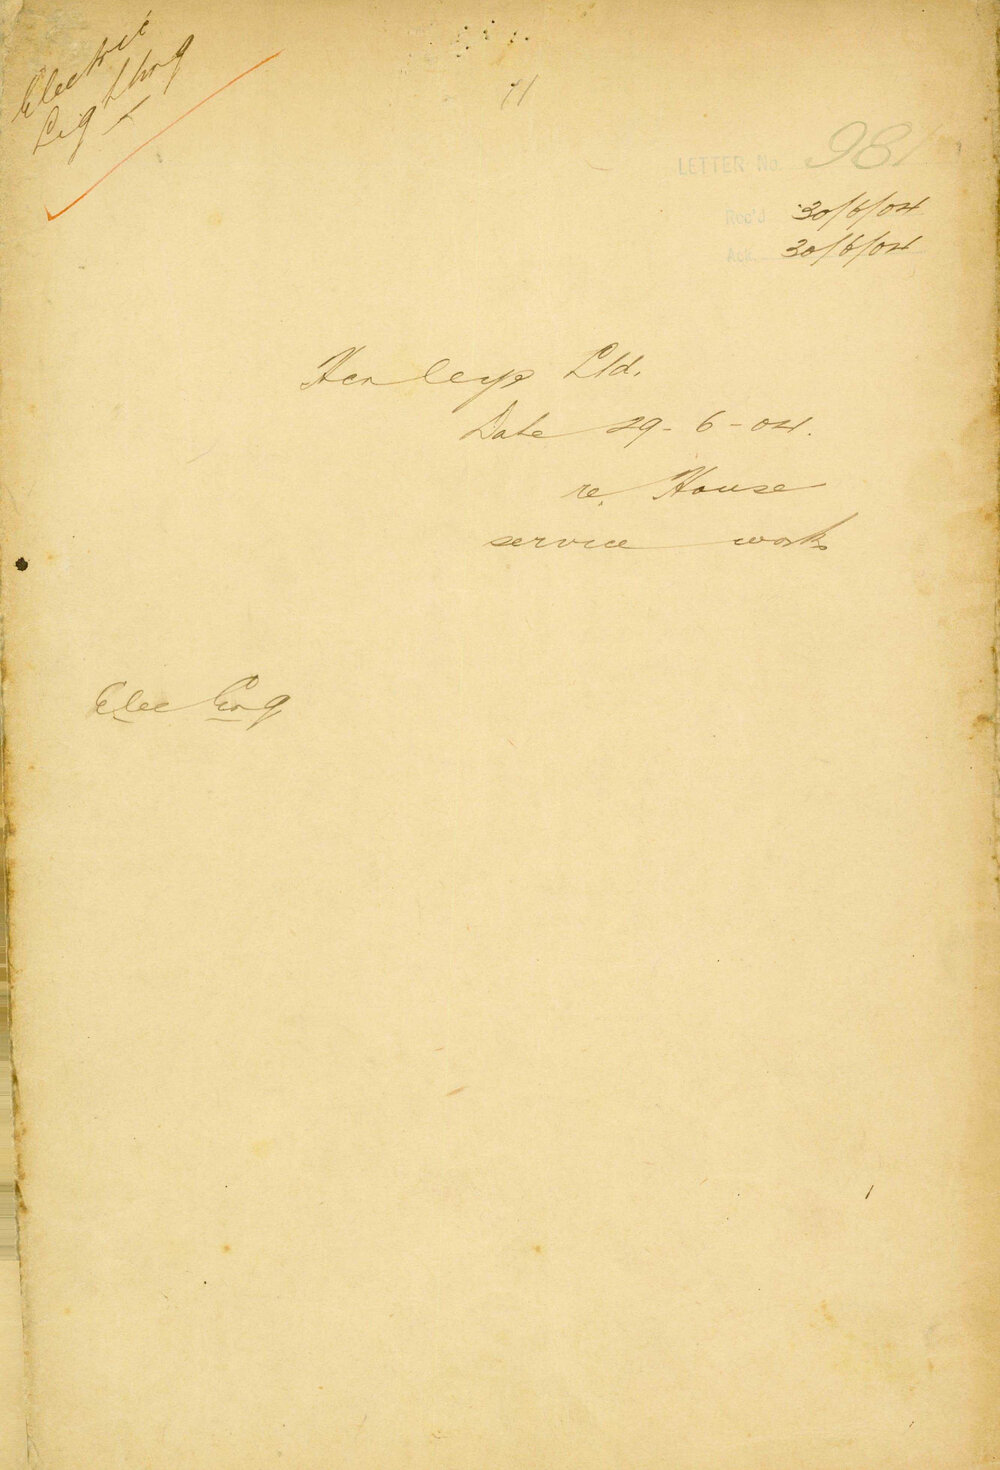 Electric
Lighting
11
LETTER No. 981
Rec'd 30/6/04
Ack. 30/6/04
Henleys Ltd.
Date 29-6-04.
re. House
service work
Elec Eng